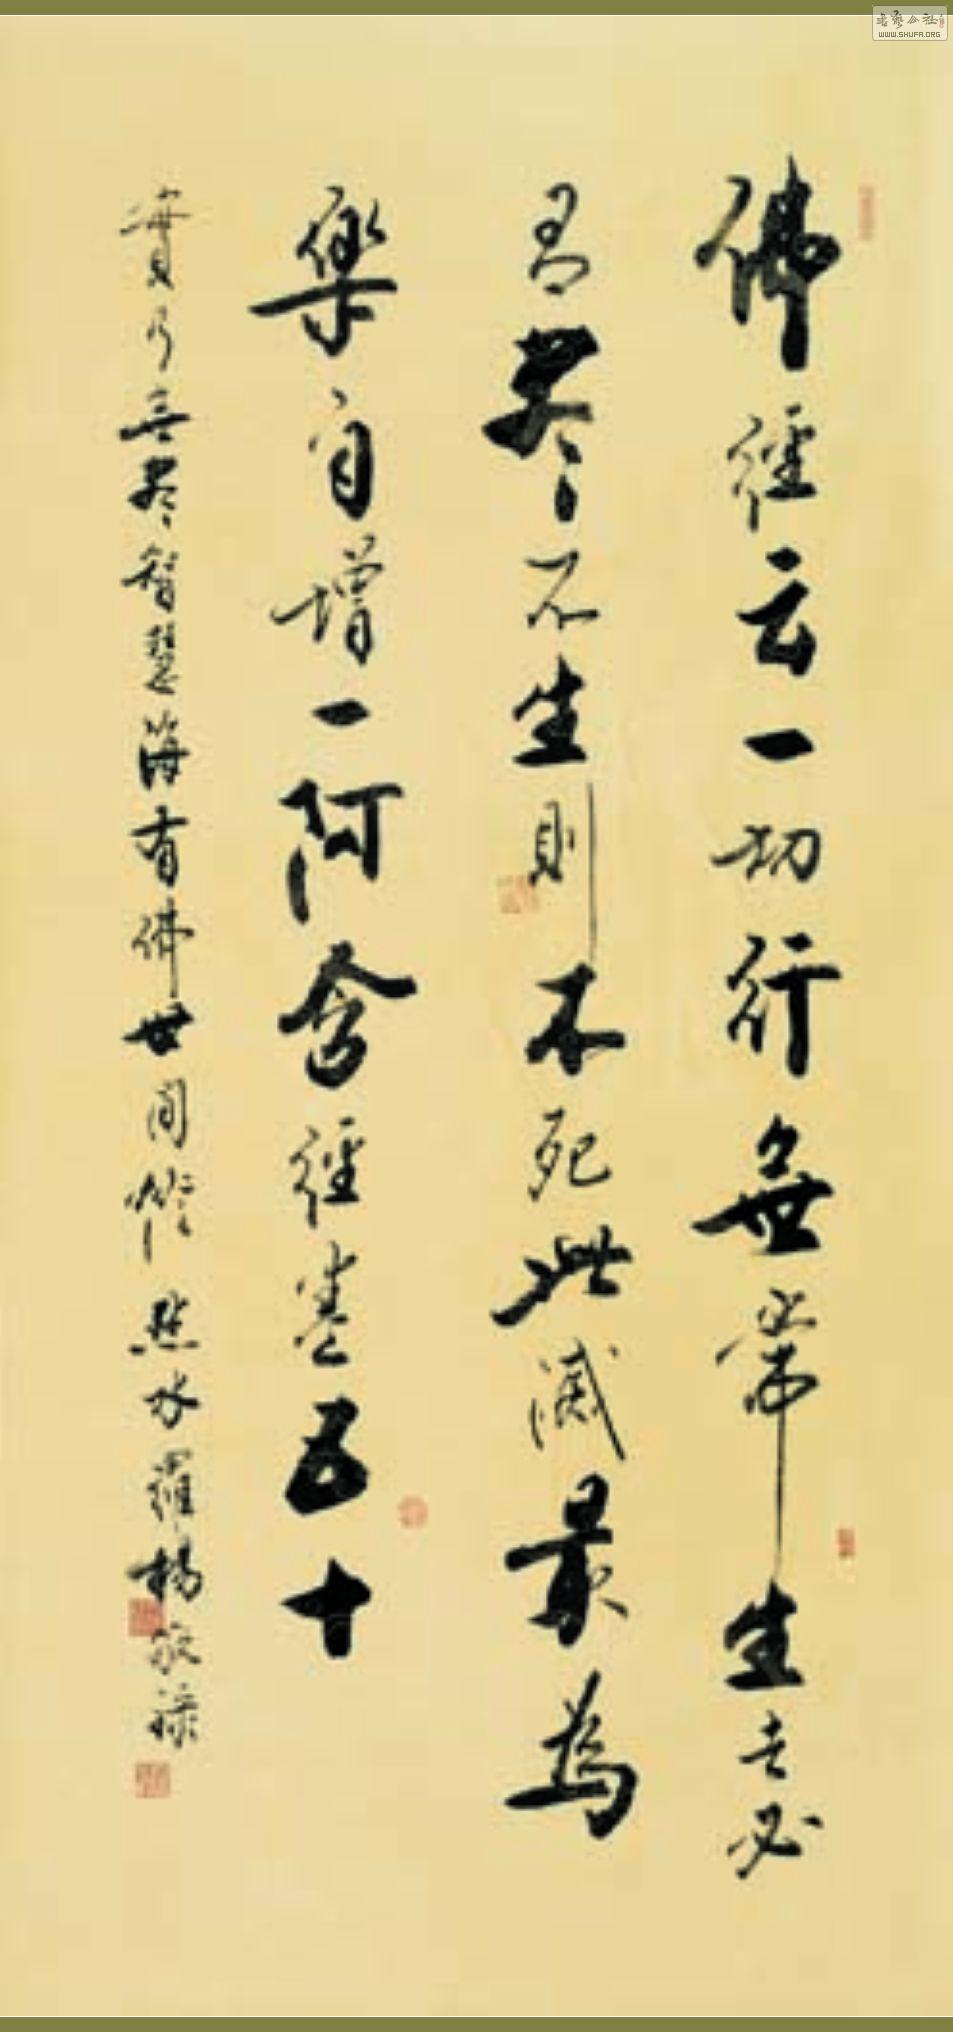 佛經云一切行無常生者必
有盡不生則不死此滅最為
樂自增一阿含經卷五十
寶乃無盡智慧海有佛世間作點水羅楊敬祿
WWW.SHUFA.ORG